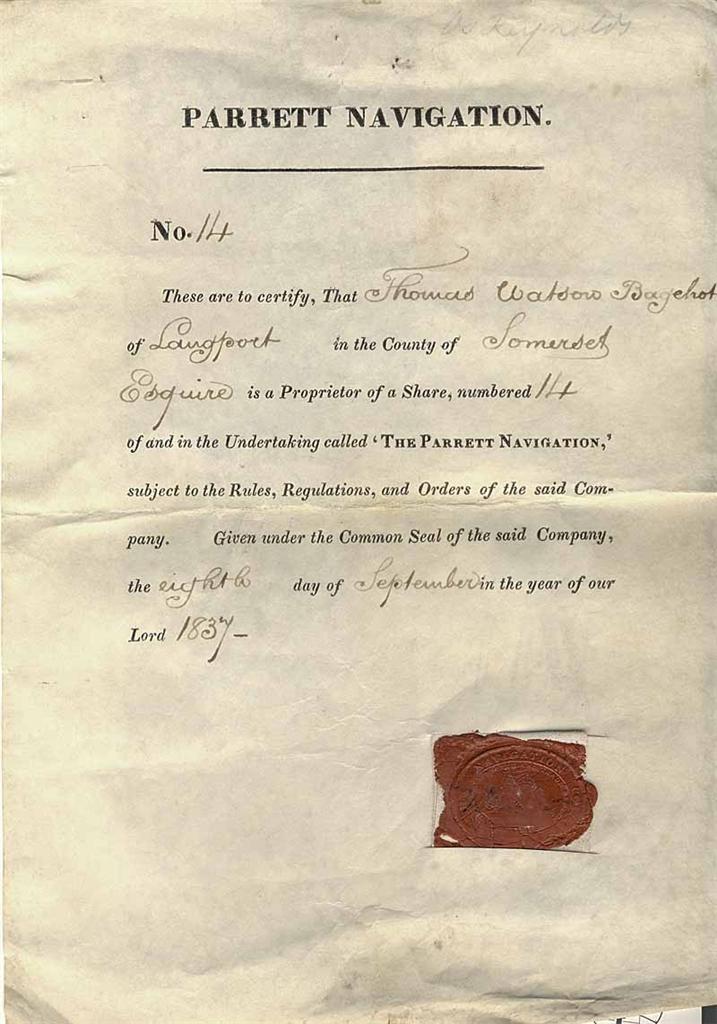 Reynolds
PARRETT NAVIGATION.
No. 14
These are to certify, That Thomas Watson Bagehot
of Langport in the County of Somerset
Esquire is a Proprietor of a Share, numbered 14
of and in the Undertaking called ‘THE PARRETT NAVIGATION,’
subject to the Rules, Regulations, and Orders of the said Com-
pany. Given under the Common Seal of the said Company,
the eighth day of September in the year of our
Lord 1837-